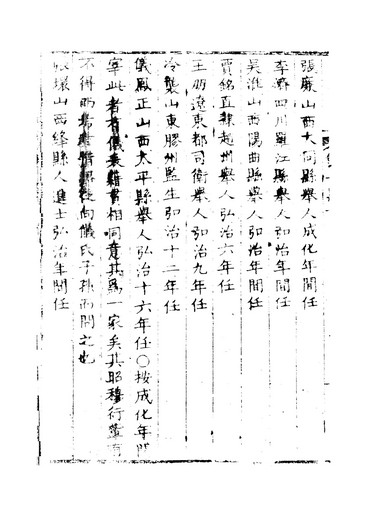 張廉山西大同縣舉人成化年間任
李爵四川羅江縣舉人弘治年間任
吳淮山西陽曲縣舉人弘治年間任
賈銘直隸趙州舉人弘治六年任
王朂遼東都司衛舉人弘治九年任
冷製山東膠州監生弘治十二年任
儀鳳正山西太平縣舉人弘治十六年任○按成化年間
宰此者有儀表籍貫相同意其為一家矣其昭穆行
不得向儀氏子孫而問之也
張環山西絳縣人進士弘治年間任